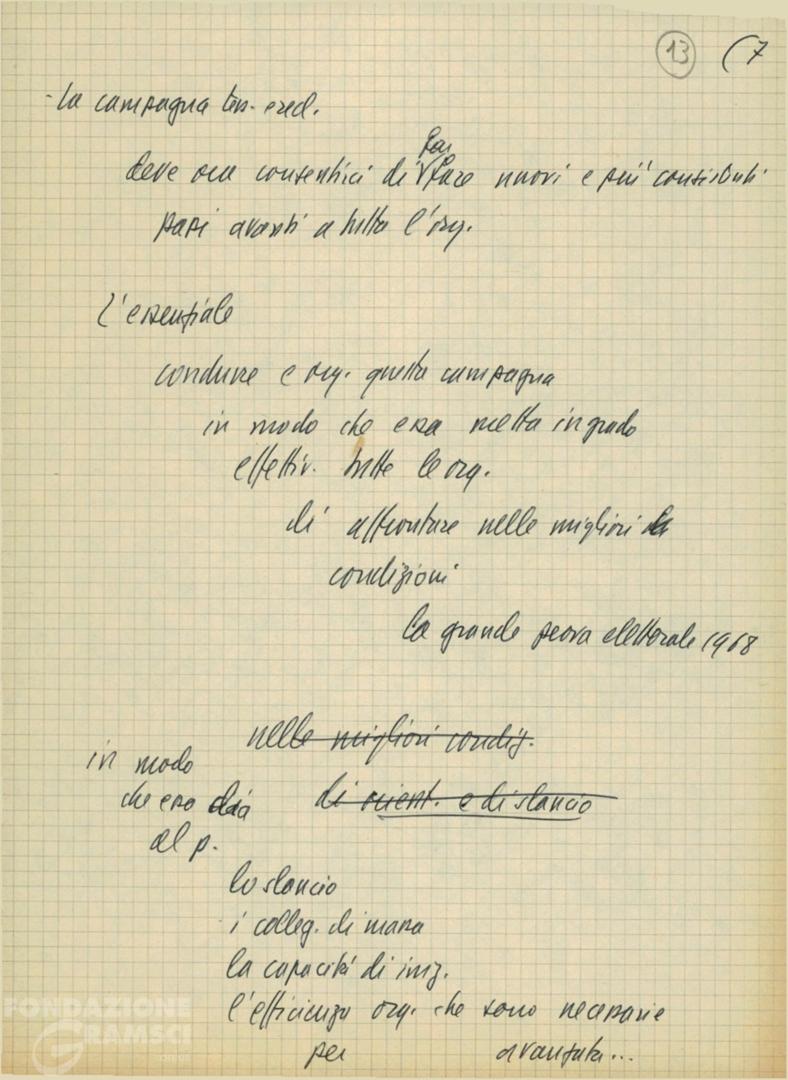 13 (7
- La campagna tess. e recl.
far
deve ora consentirci di fare nuovi e più consistenti
passi avanti a tutta l'org.
L'essenziale
condurre e org. questa campagna
in modo che essa metta in grado
effettiv. tutte le org.
di affrontare nelle migliori
condizioni
la grande prova elettorale 1968
nelle migliori condiz.
in modo
di orient. e di slancio
che essa dia
al p.
lo slancio
i colleg. di massa
la capacità di iniz.
l'efficienza org. che sono necessarie
per avanzata...
FONDAZIONE
GRAMSCI